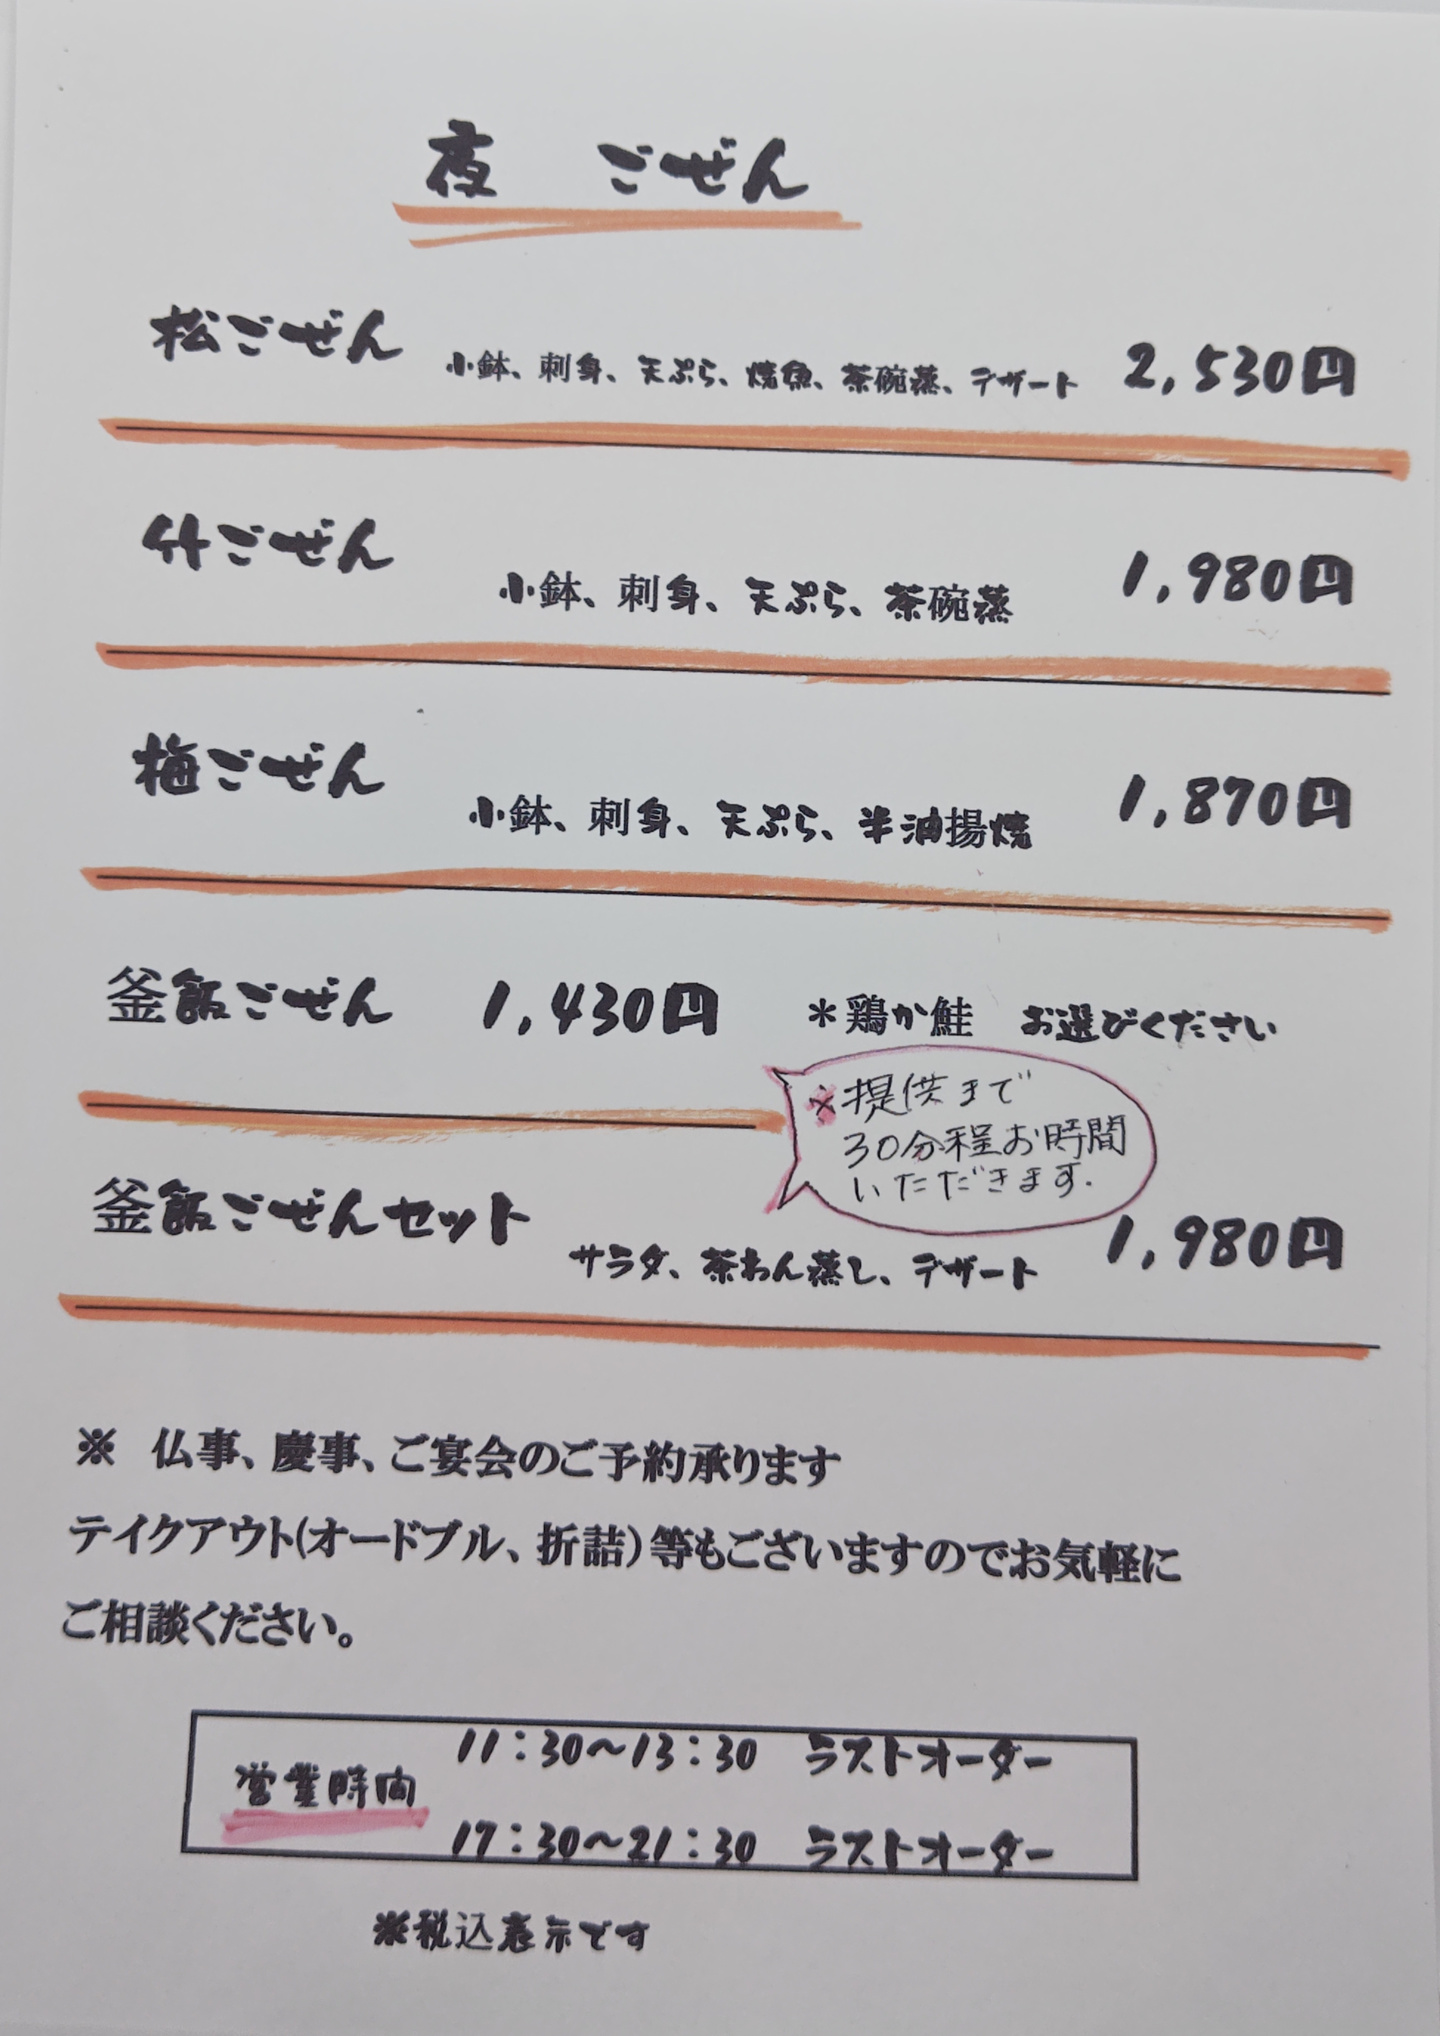 夜　ごぜん
松ごぜん 小鉢、刺身、天ぷら、焼魚、茶碗蒸、デザート 2,530円
竹ごぜん 小鉢、刺身、天ぷら、茶碗蒸 1,980円
梅ごぜん 小鉢、刺身、天ぷら、半油揚焼 1,870円
釜飯ごぜん 1,430円 ＊鶏か鮭　お選びください
※提供まで
30分程お時間
いただきます.
釜飯ごぜんセット サラダ、茶わん蒸し、デザート 1,980円
※　仏事、慶事、ご宴会のご予約承ります
テイクアウト(オードブル、折詰）等もございますのでお気軽に
ご相談ください。
営業時間
11：30～13：30　ラストオーダー
17：30～21：30　ラストオーダー
※税込表示です